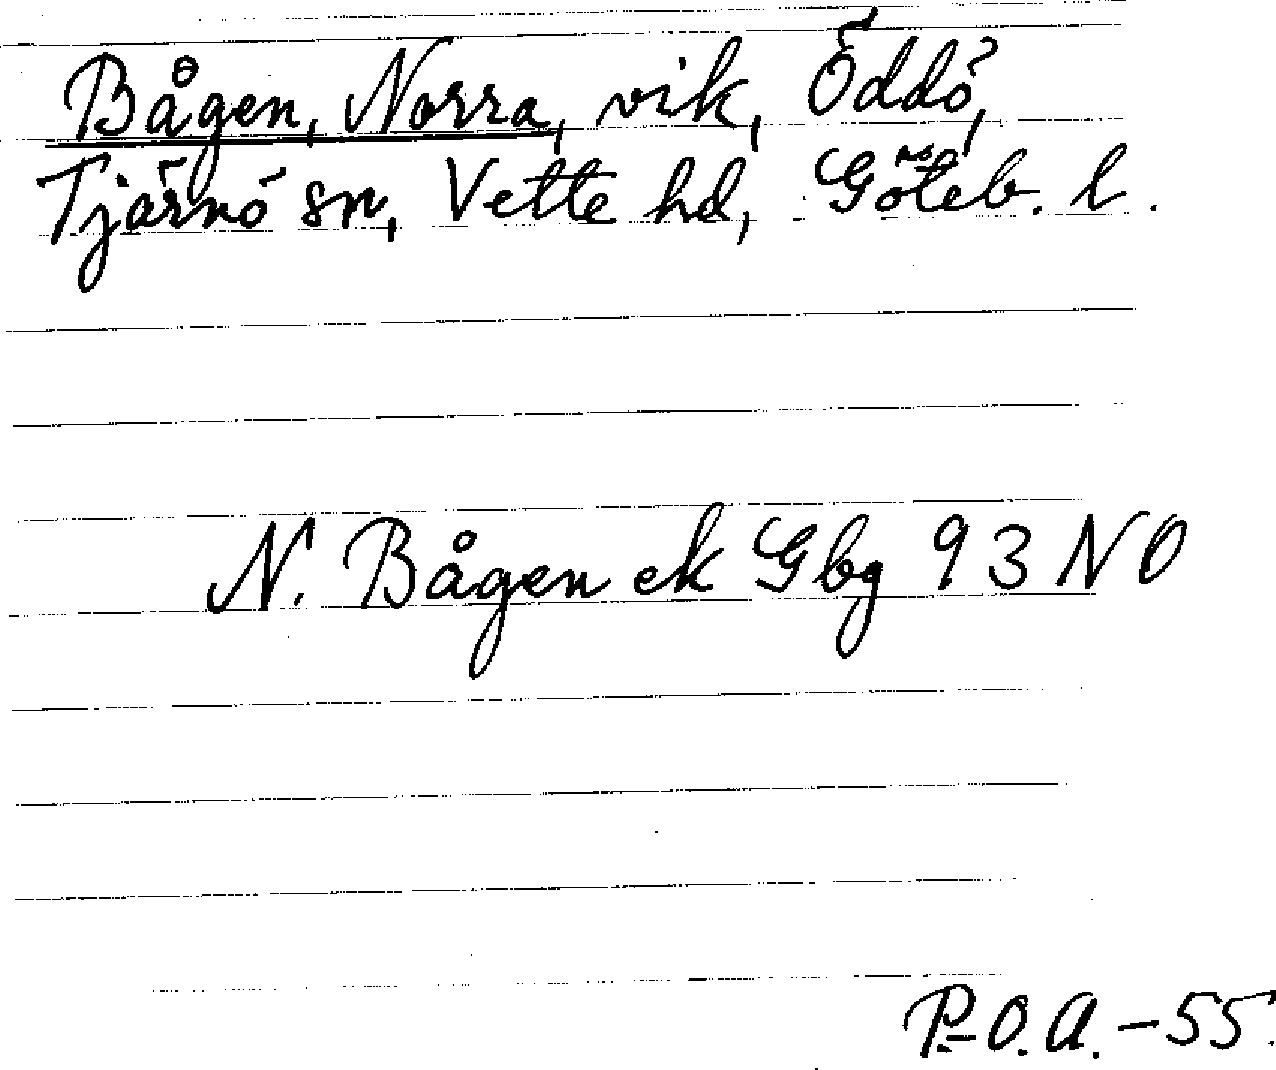 Bågen, Norra, vik, Öddö,
Tjärnö sn, Vette hd, Göteb. l.
N. Bågen ek Gbg 93 NO
P.-O. A. -55.